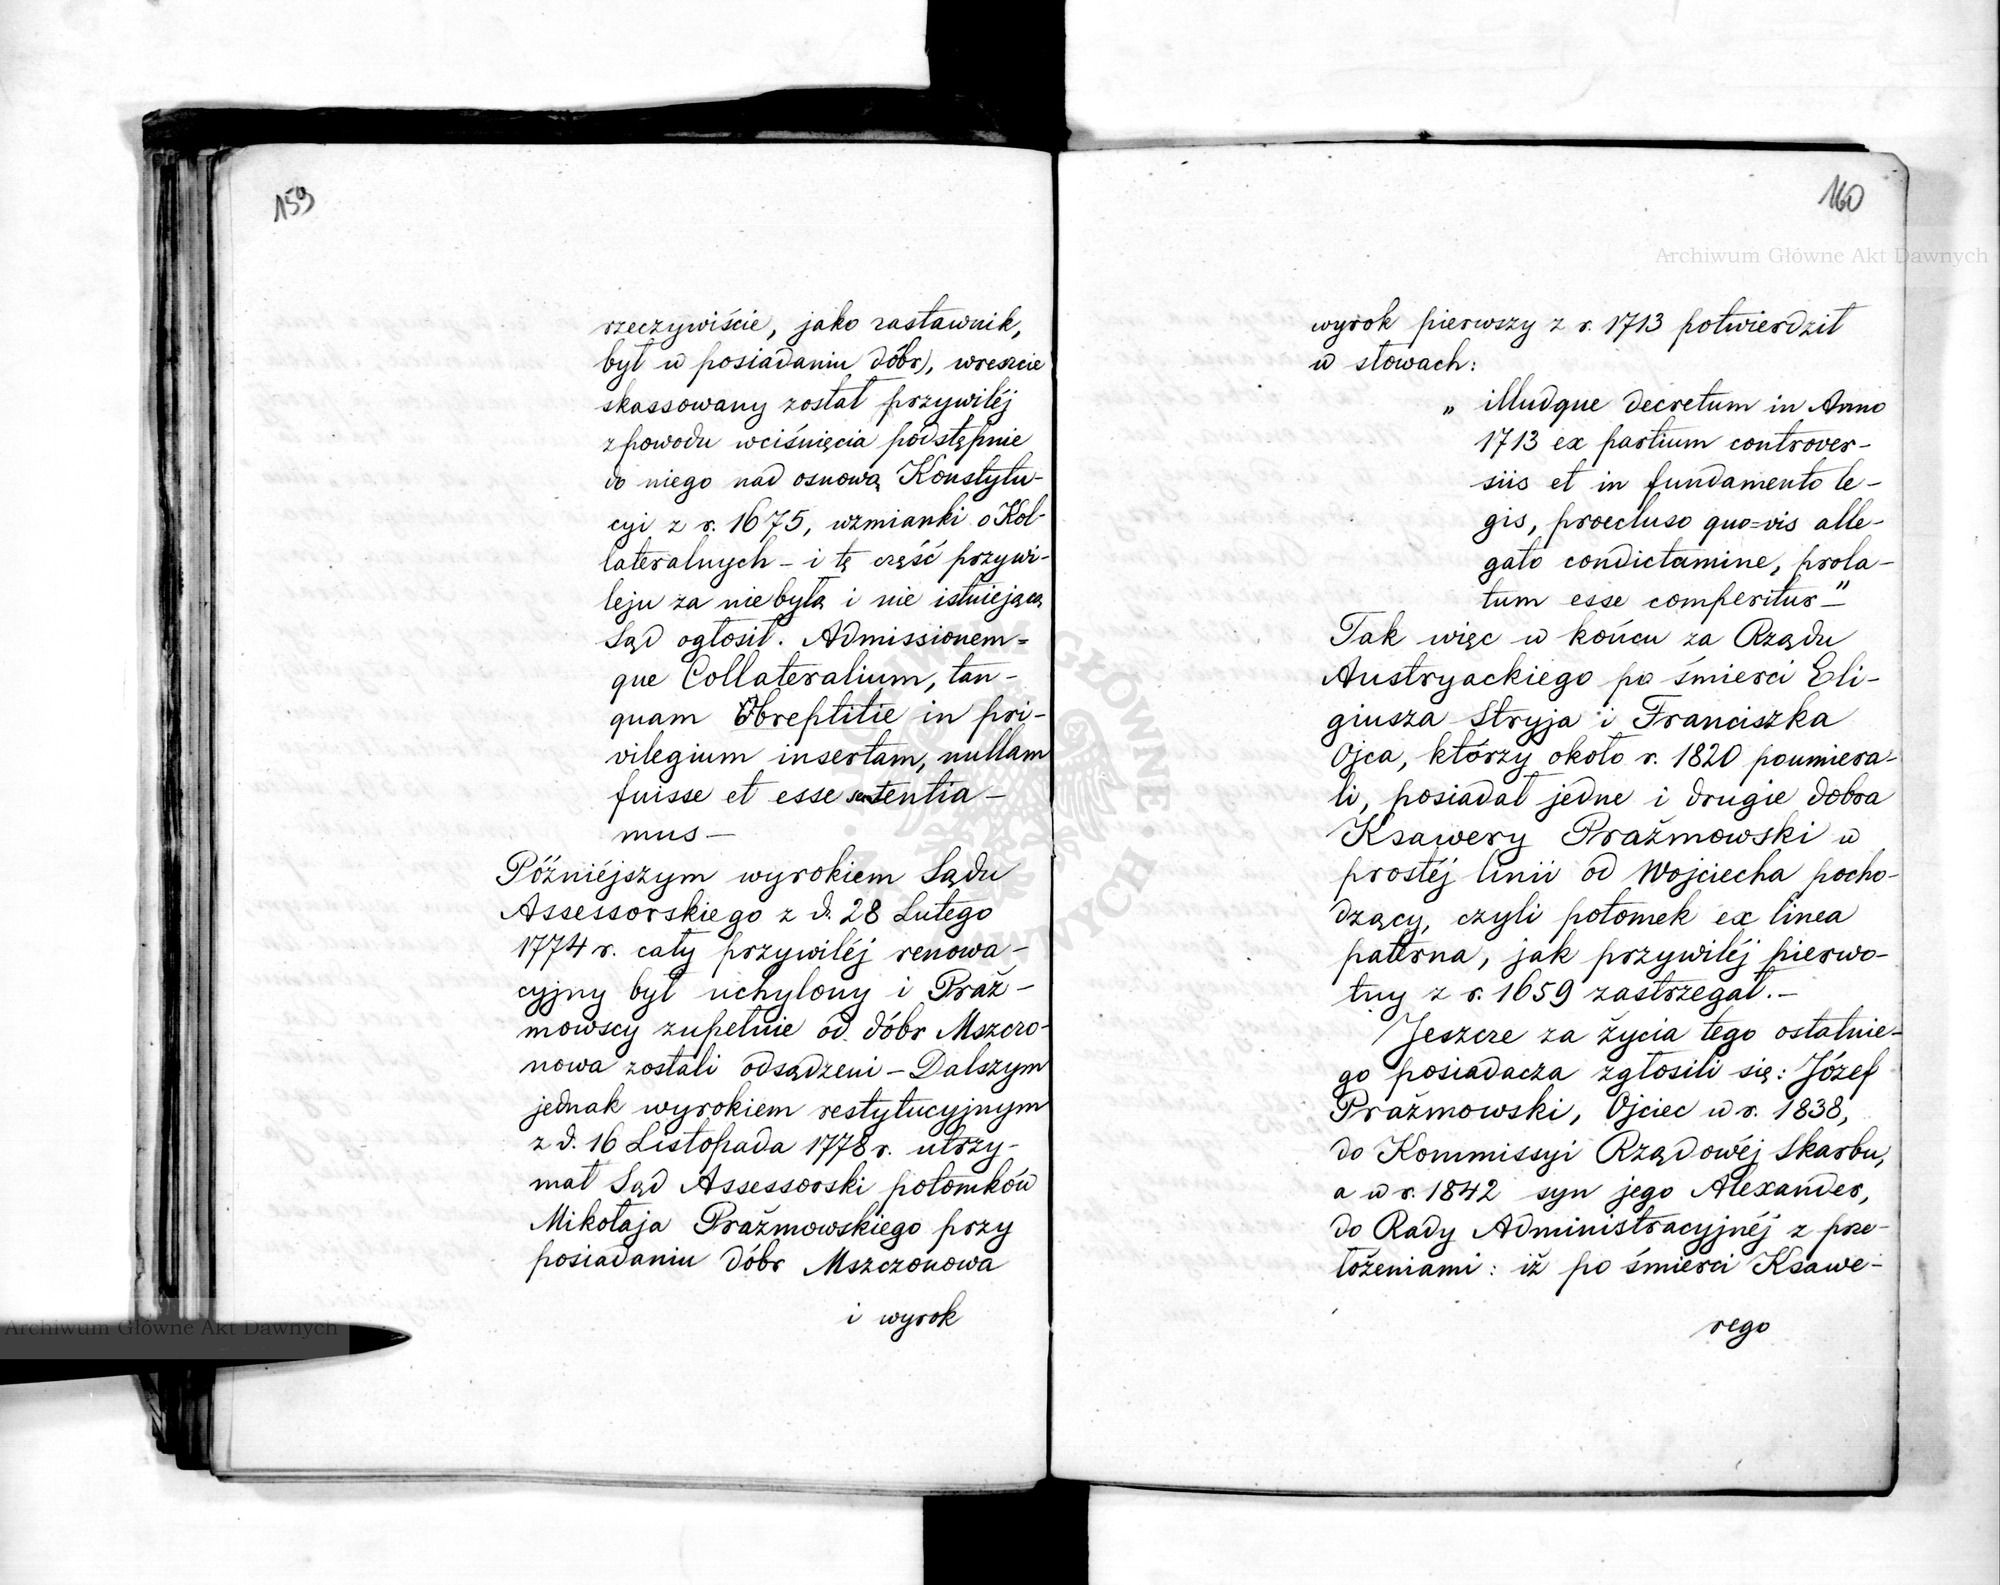 159
rzeczywiście, jako zastawnik,
był w posiadaniu dóbr), wreszcie
skassowany został przywiléj
z powodu wciśnięcia podstępnie
do niego nad osnową Konstytu-
cyi z r. 1675, wzmianki o Kol-
lateralnych – i tę część przywi-
leju za niebyłą i nie istniejącą
Sąd ogłosił. Admissionem=
que Collateralium, tan-
quam Obreptitie in pri-
vilegium insertam, nullam
fuisse et esse sententia-
mus –
Późniéjszym wyrokiem Sądu
Assessorskiego z d. 28 Lutego
1774 r. cały przywiléj renowa-
cyjny był uchylony i Praż-
mowscy zupełnie od dóbr Mszczo-
nowa zostali odsądzeni – Dalszym
jednak wyrokiem restytucyjnym
z d. 16 Listopada 1778 r. utrzy-
mał Sąd Assessorski potomków
Mikołaja Prażmowskiego przy
posiadaniu dóbr Mszczonowa
i wyrok
160
wyrok pierwszy z r. 1713 potwierdził
w słowach:
„ illudque decretum in Anno
1713 ex partium controver-
siis et in fundamento le-
gis, proecluso quo=vis alle-
gato condictamine, prola-
tum esse comperitur –"
Tak więc w końcu za Rządu
Austryackiego po śmierci Eli-
giusza Stryja i Franciszka
Ojca, którzy około r. 1820 poumiera-
li, posiadał jedne i drugie dobra
Ksawery Prażmowski w
prostéj linii od Wojciecha pocho-
dzący, czyli potomek ex linea
paterna, jak przywiléj pierwo-
tny z r. 1659 zastrzegał. –
Jeszcze za życia tego ostatnie-
go posiadacza zgłosili się: Józef
Prażmowski, Ojciec w r. 1838,
do Kommissyi Rządowéj Skarbu,
a w r. 1842 syn jego Alexander,
do Rady Administracyjnéj z prze-
łożeniami: iż po śmierci Ksawe-
rego
Archiwum Główne Akt Dawnych
Archiwum Główne Akt Dawnych